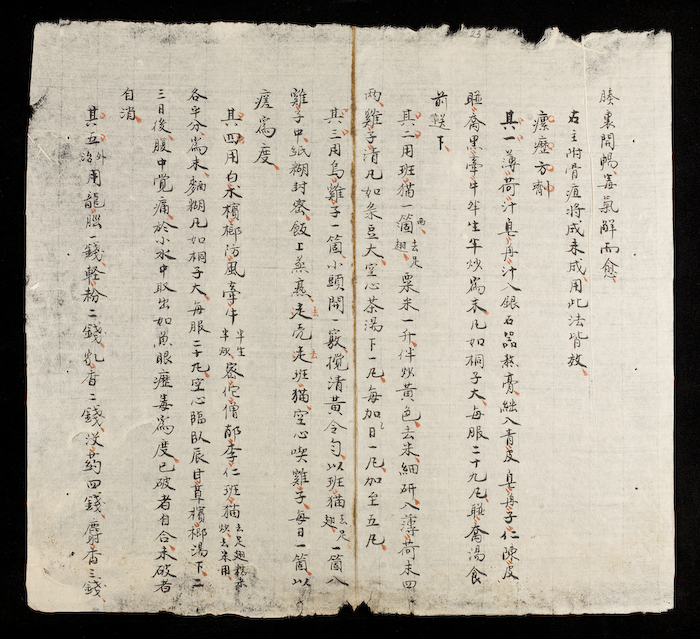 腠裏間暢毒氣解而愈
右主附骨疽將成未成用此法皆效
瘰癧方劑
其一薄荷汁皂角汁入銀石器熬膏 入青皮 子仁陳皮
黑牽牛半生半炒為末凡如桐子大每服二十九凡 湯食
前送下
其二用班猫一箇 去足翅 粟米一升仝炒黄色去米細研入薄荷末四
兩雞子清凡如菉豆大空心茶湯下一凡每加日一凡加至五凡
其三用烏雞子一箇小頭開一竅攪清黄令匀以班猫 去足翅 一箇入
雞子中紙糊封密飯上蒸熟去壳去班猫空心喫雞子每日一箇以
瘥為度
其四用白朮檳榔防風牽牛 半生半炒 密佗僧郁李仁班猫 去足翅粘米炒去米用
各半分為末麵糊凡如桐子大每服二十九空心臨臥辰甘草檳榔湯下二
三日後腹中覺痛於小水中取出如黄眼癧毒為度已破者自合未破者
自消
其五 外治 用龍腦一錢輕粉二錢乳香二錢沒葯四錢麝香三錢